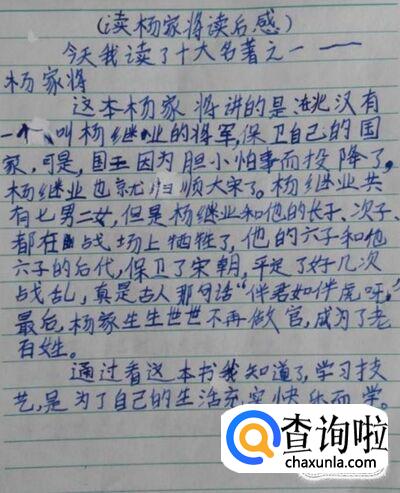 (读杨家将读后感)
今天我读了十大名著之一——
杨家将
这本杨家将讲的是北汉有
一个叫杨继业的将军,保卫自己的国
家,可是,国王因为胆小怕事而投降了,
杨继业也就归顺大宋了。杨继业共
有七男二女,但是杨继业和他的长子、次子、
都在战场上牺牲了,他的六子和他
六子的后代,保卫了宋朝,平定了好几次
战乱,真是古人那句话“伴君如伴虎呀。”
最后,杨家生生世世不再做官,成为了老
百姓。
通过看这本书我知道了,学习技
艺,是为了自己的生活充实快乐而学。
查询啦
chaxunla.com